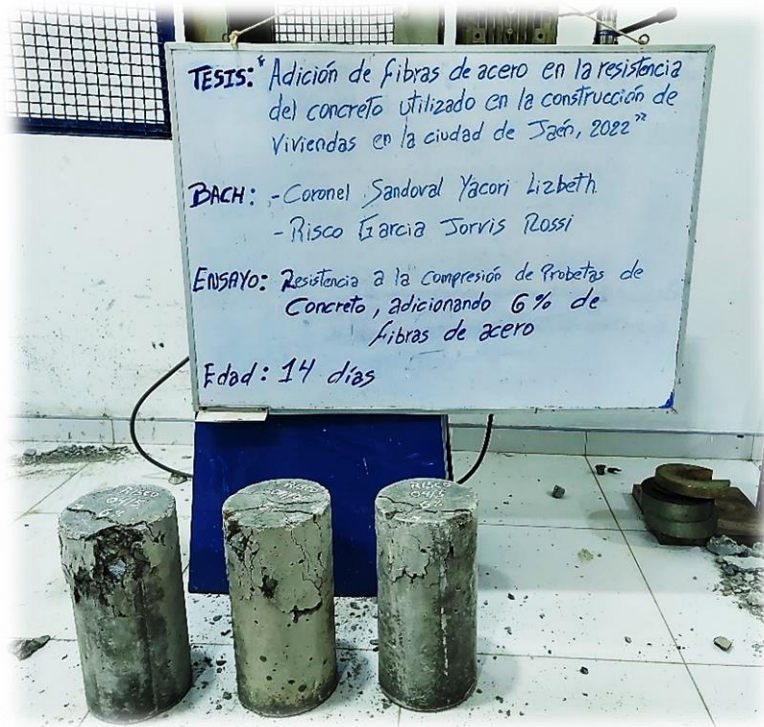 TESIS: "Adición de fibras de acero en la resistencia
del concreto utilizado en la construcción de
Viviendas en la ciudad de Jaén, 2022"
BACH: - Coronel Sandoval Yacori Lizbeth
- Risco Garcia Jorvis Rossi
ENSAYO: Resistencia a la Compresión de Probetas de
Concreto, adicionando 6% de
fibras de acero
Edad: 14 días
RISCO
04/5
6%
RISCO
04/5
6%